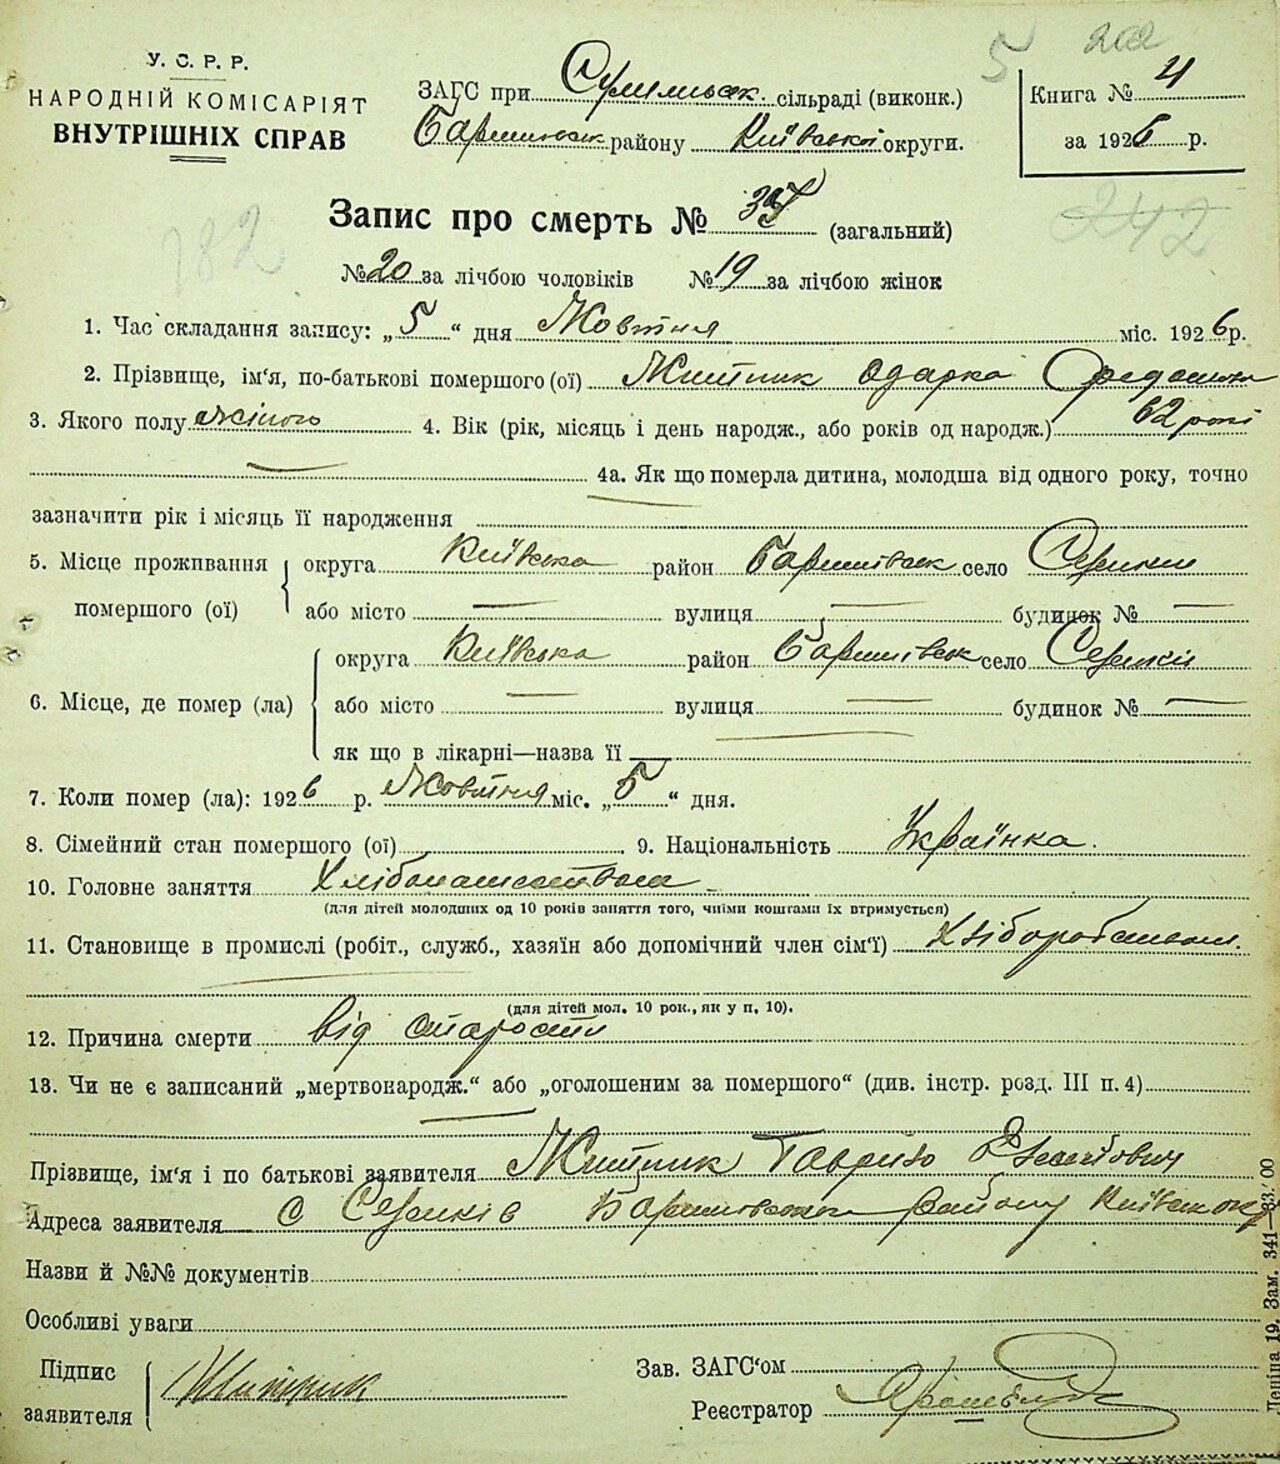 У. С. Р. Р.
НАРОДНІЙ КОМІСАРІЯТ
ВНУТРІШНІХ СПРАВ
ЗАГС при сільраді (виконк.)
району Київської округи.
5 202
Книга № 4
за 1926 р.
Запис про смерть № (загальний)
182 242
№ 20 за лічбою чоловіків № 19 за лічбою жінок
1. Час складання запису: „5“ дня Жовтня міс. 1926 р.
2. Прізвище, ім'я, по-батькові помершого (ої) Житник Одарка
3. Якого полу жіного 4. Вік (рік, місяць і день народж., або років од народж.) 62 роки
4а. Як що померла дитина, молодша від одного року, точно
зазначити рік і місяць її народження
5. Місце проживання помершого (ої) округа Київська район Баришівськ село Селишки
або місто — вулиця — будинок № —
6. Місце, де помер (ла) округа Київська район Баришівськ село
або місто — вулиця — будинок № —
як що в лікарні—назва її —
7. Коли помер (ла): 1926 р. Жовтня міс. „5“ дня.
8. Сімейний стан помершого (ої) 9. Національність Українка.
10. Головне заняття
(для дітей молодших од 10 років заняття того, чиїми коштами їх втримується)
11. Становище в промислі (робіт., служб., хазяїн або допомічний член сім'ї)
(для дітей мол. 10 рок., як у п. 10).
12. Причина смерти від старости
13. Чи не є записаний „мертвонародж.“ або „оголошеним за помершого“ (див. інстр. розд. III п. 4)
Прізвище, ім'я і по батькові заявителя Житник Гаврило
Адреса заявителя с району
Назви й №№ документів
Особливі уваги
Підпис заявителя Житник
Зав. ЗАГС'ом
Реєстратор
Леніна 19. Зам. 341—